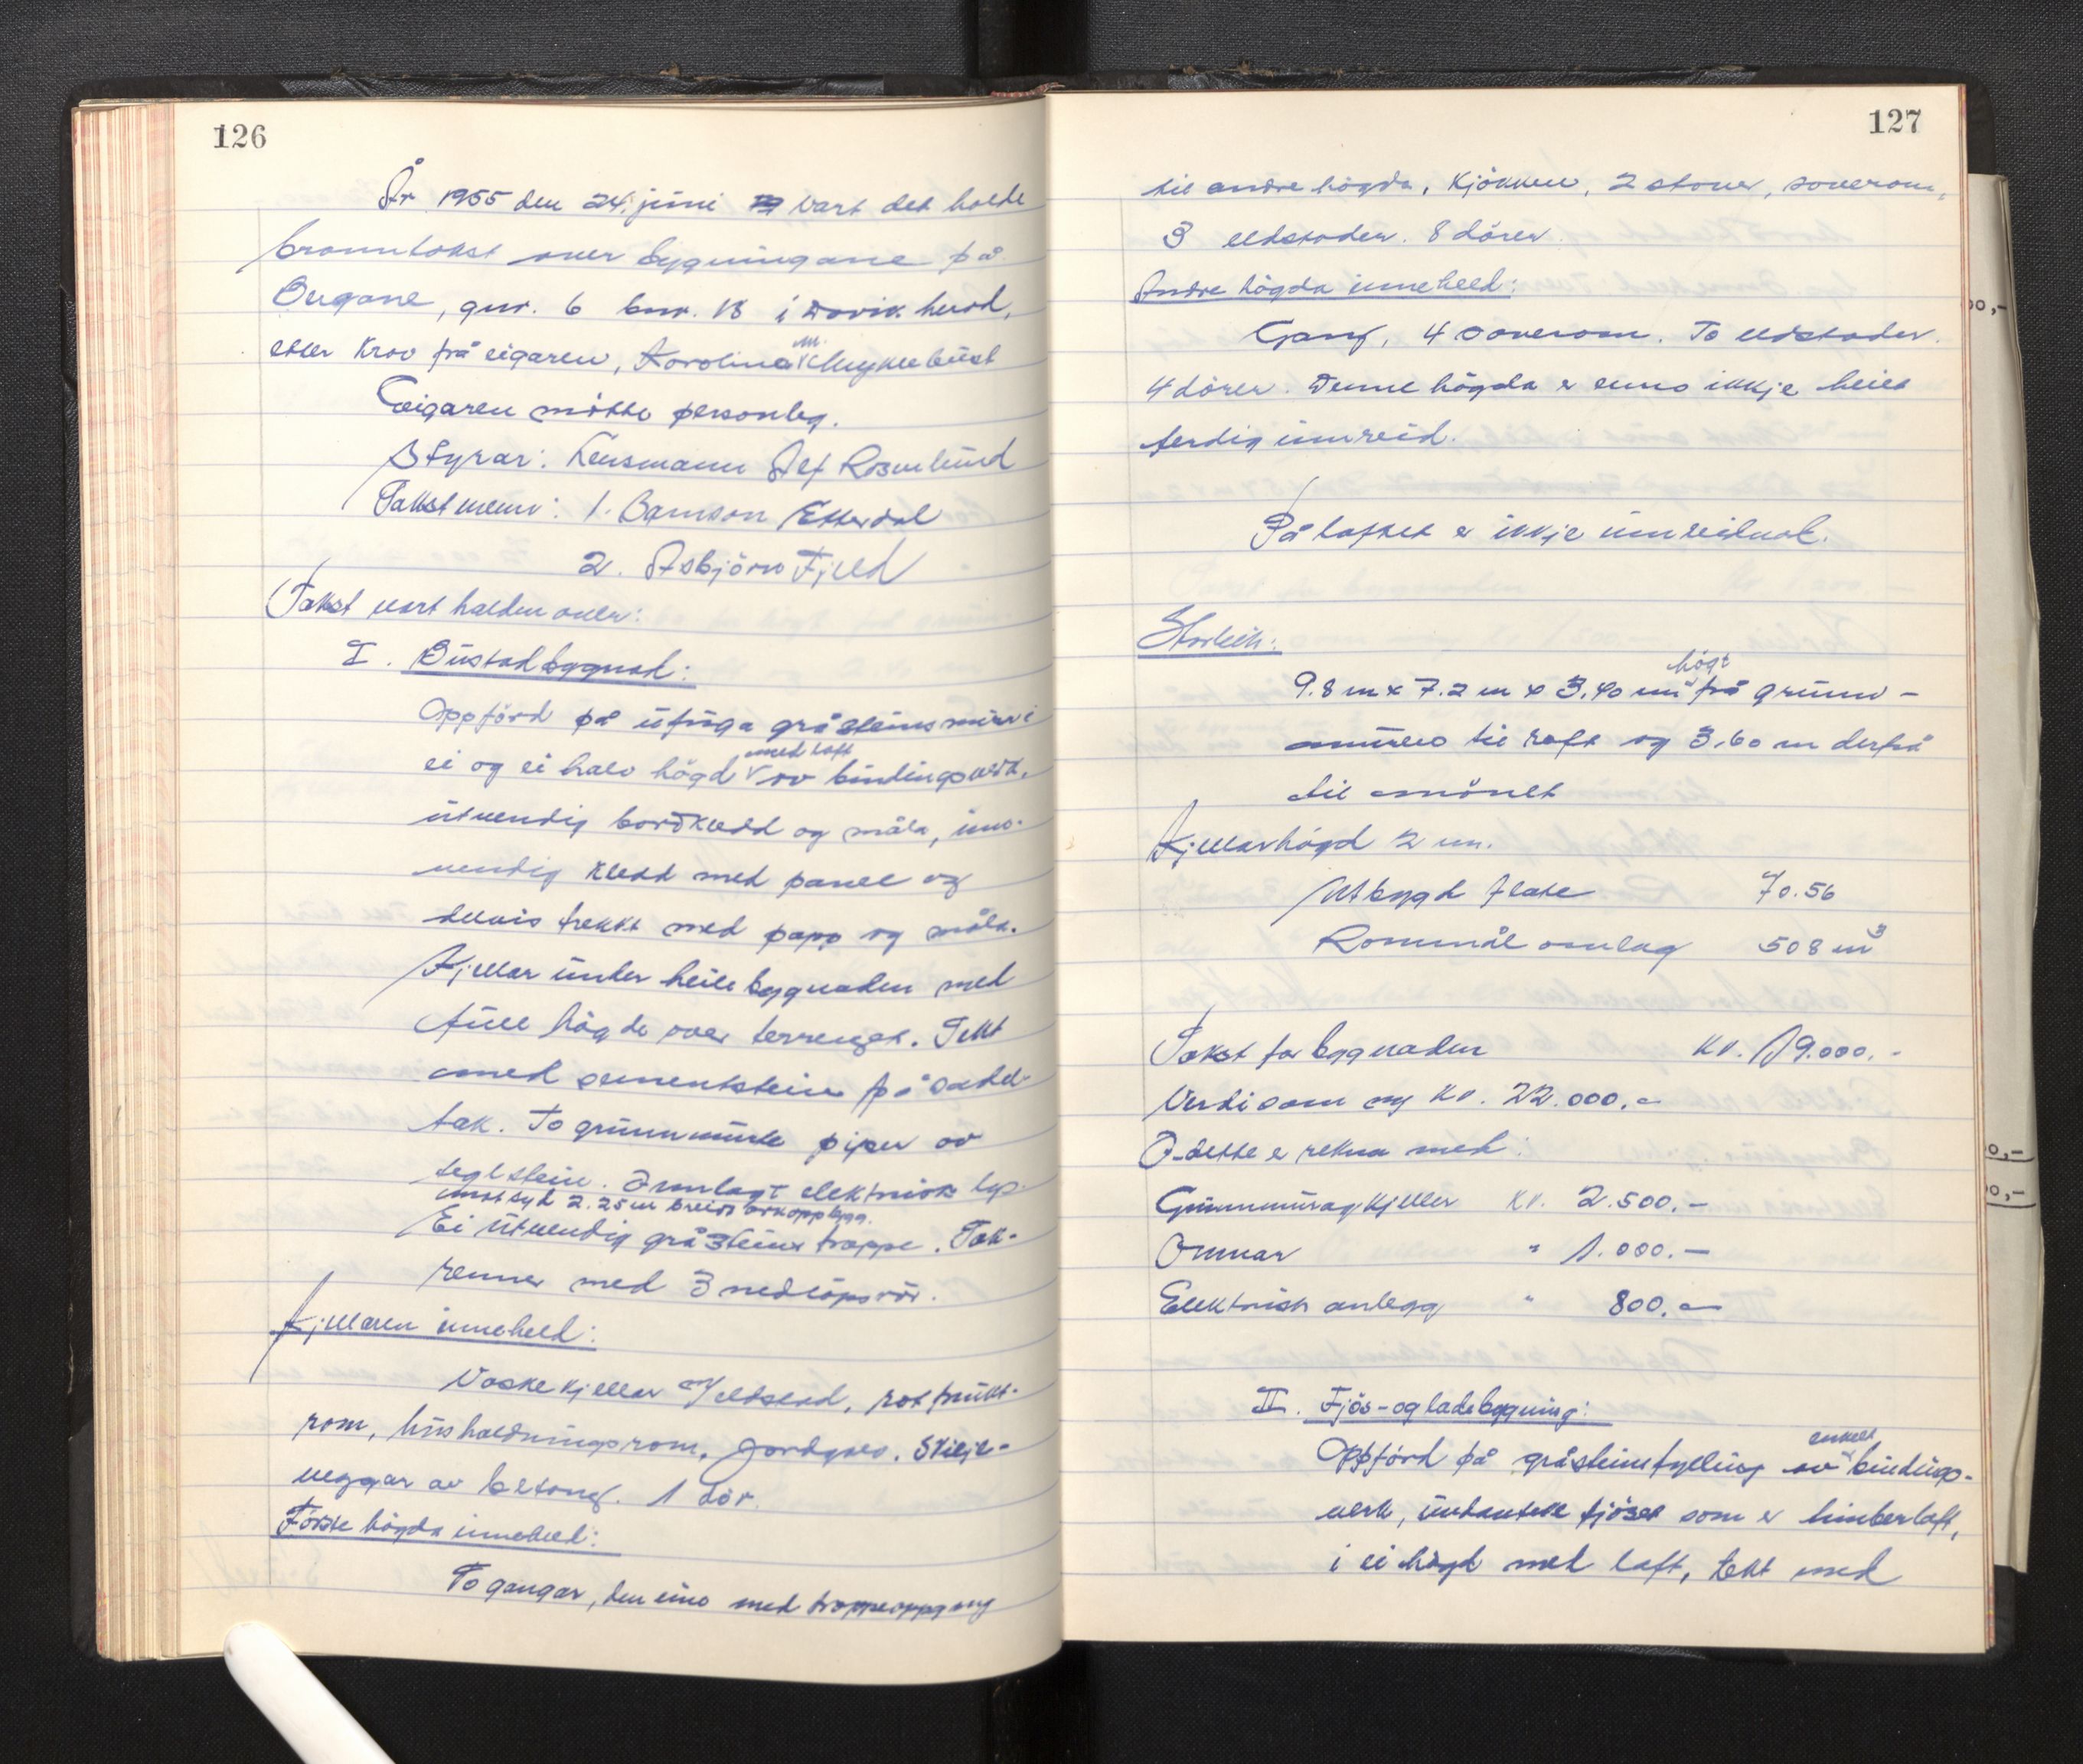 126
År 1955 den 24. juni vart det halde
branntakst over bygningane på
Bergane, gnr. 6 bnr. 18 i Davik herad,
etter krav frå eigaren, Karolina M. Myklebust
Eigaren møtte personleg.
Styrar: Lensmann Alf Rosenlund
Takstmenn: 1. Bamson Etterdal
2. Asbjörn Fjeld
Takst vart halden over:
I. Bustadbygnad:
Oppförd på ufuga gråsteinsmur i
ei og ei halv högd med loft av bindingsverk,
utvendig bordkledd og måla, inn-
vendig kledd med panel og
delvis trekkt med papp og måla.
Kjellar under heile bygnaden med
full högde over terrenget. Tekt
med sementstein på sadel-
tak. To grunnmurte piper av
teglstein. Innlagt elektrisk lys.
mot syd 2.25 m breidt arkoppbygg.
Ei utvendig gråsteins trappe. Tak-
renner med 3 nedlöpsrör.
Kjellaren inneheld:
Vaskekjellar m/eldstad, rotfrukt-
rom, hushaldningsrom. Jordgolv. Skilje-
veggar av betong. 1 dör.
Förste högda inneheld:
To gangar, den eine med trappeoppgang
127
til andre högda, kjökken, 2 stover, soverom,
3 eldstader. 8 dörer.
Andre högda inneheld:
Gang, 4 soverom. To eldstader.
4 dörer. Denne högda er enno ikkje heilt
ferdig innreid.
På loftet er ikkje innreidnat.
Storleik:
9.8 m x 7.2 m x 3.40 m högt frå grunn-
muren til raft og 3.60 m derfrå
til mönet
Kjellarhögd 2 m.
Utbygd flate 70.56
Rommål omlag 508 m3
Takst for bygnaden kr. 19.000.-
Verdi som ny kr. 22.000.-
I dette er rekna med:
Grunnmur og kjeller kr. 2.500.-
Omnar " 1.000.-
Elektrisk anlegg " 800.-
II. Fjös- og ladebygning:
Oppförd på gråsteinsfylling av enkelt bindings-
verk, undanteke fjöset som er timberlaft,
i ei högd med loft, tekt med
00,-
0,-
0,-